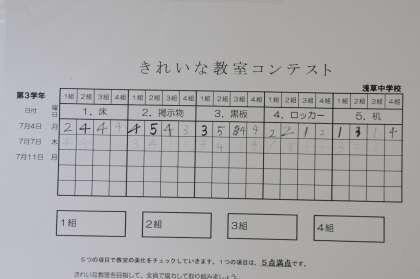 きれいな教室コンテスト
浅草中学校
第3学年 1組 2組 3組 4組 1組 2組 3組 4組 1組 2組 3組 4組 1組 2組 3組 4組 1組 2組 3組 4組
日付 曜日 1、床 2、掲示物 3、黒板 4、ロッカー 5、机
7月4日 月 2 4 4 4 4 5 4 3 3 5 4 2 2 1 2 1 3 1 4
7月7日 木
7月11日 月
1組 2組 3組 4組
5つの項目で教室の美化をチェックしていきます。1つの項目は、5点満点です。
きれいな教室を目指して、全員で協力して取り組みましょう。